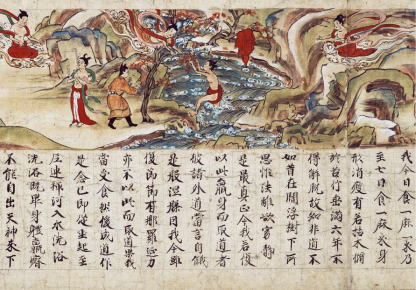 我今日食一麻一米乃
至七日食一麻米身
形消瘦有若枯木修
於苦行垂滿六年不
得解脫故知非道不
如昔在閻浮樹下所
思惟法離欲寂靜
是最真正今我若復
以此羸身而取道者
彼諸外道當言自餓
是般涅槃因我今雖
復節節有那羅延力
亦不以此而取道果我
當受食然後成道作
是念已即從坐起至
尼連禪河入水洗浴
洗浴既畢身體羸瘠
不能自出天神来下